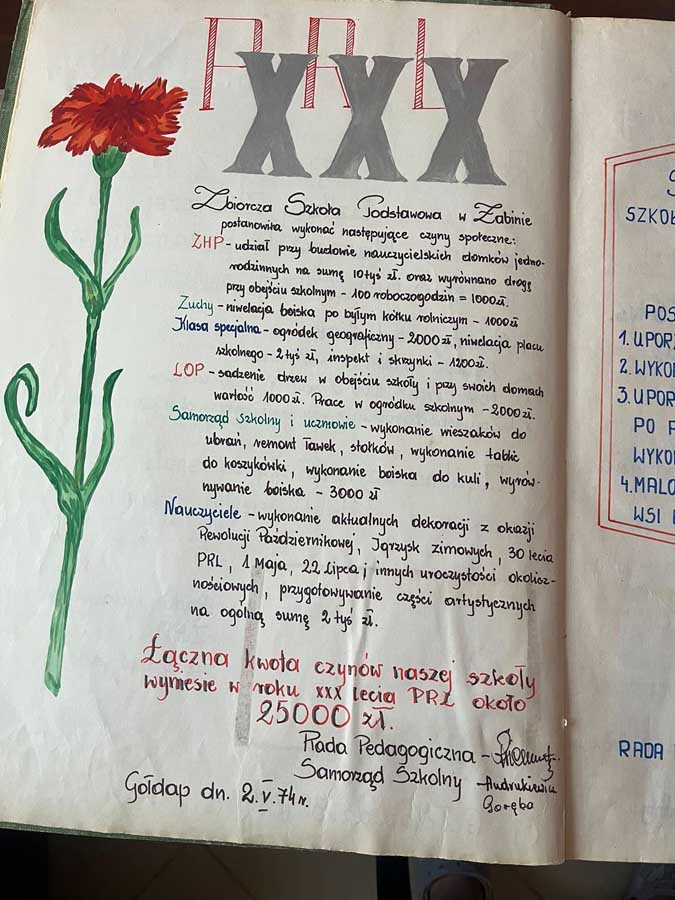 PRL
XXX
Zbiorcza Szkoła Podstawowa w Żabinie
postanowiła wykonać następujące czyny społeczne:
ZHP - udział przy budowie nauczycielskich domków jedno-
rodzinnych na sumę 10 tyś zł. oraz wyrównano drogę
przy obejściu szkolnym - 100 roboczogodzin = 1000 zł.
Zuchy - niwelacja boiska po byłym kółku rolniczym - 1000 zł
Klasa specjalna - ogródek geograficzny - 2000 zł, niwelacja placu
szkolnego - 2 tyś zł, inspekt i skrzynki - 1200 zł.
LOP - sadzenie drzew w obejściu szkoły i przy swoich domach
wartość 1000 zł. Prace w ogródku szkolnym - 2000 zł.
Samorząd szkolny i uczniowie - wykonanie wieszaków do
ubrań, remont ławek, stołków, wykonanie tablic
do koszykówki, wykonanie boiska do kuli, wyrów-
nywanie boiska - 3000 zł
Nauczyciele - wykonanie aktualnych dekoracji z okazji
Rewolucji Październikowej, Igrzysk zimowych, 30 lecia
PRL, 1 Maja, 22 Lipca i innych uroczystości okolicz-
nościowych, przygotowywanie części artystycznych
na ogólną sumę 2 tyś zł.
Łączna kwota czynów naszej szkoły
wyniesie w roku XXX lecia PRL około
25000 zł.
Rada Pedagogiczna -
Samorząd Szkolny - Andrukiewicz
Goręba
Gołdap dn. 2.V.74 r.
S
SZKOŁ
POS
1. UPORZ
2. WYKO
3. UPOR
PO P
WYKO
4. MALO
WSI
RADA